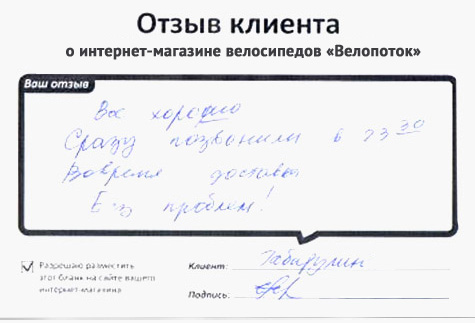 Отзыв клиента
о интернет-магазине велосипедов «Велопоток»
Ваш отзыв
Все хорошо
Сразу позвонили в 23 30
Вовремя доставка
Без проблем!
Разрешаю разместить
этот бланк на сайте вашего
интернет-магазина
Клиент:
Подпись: